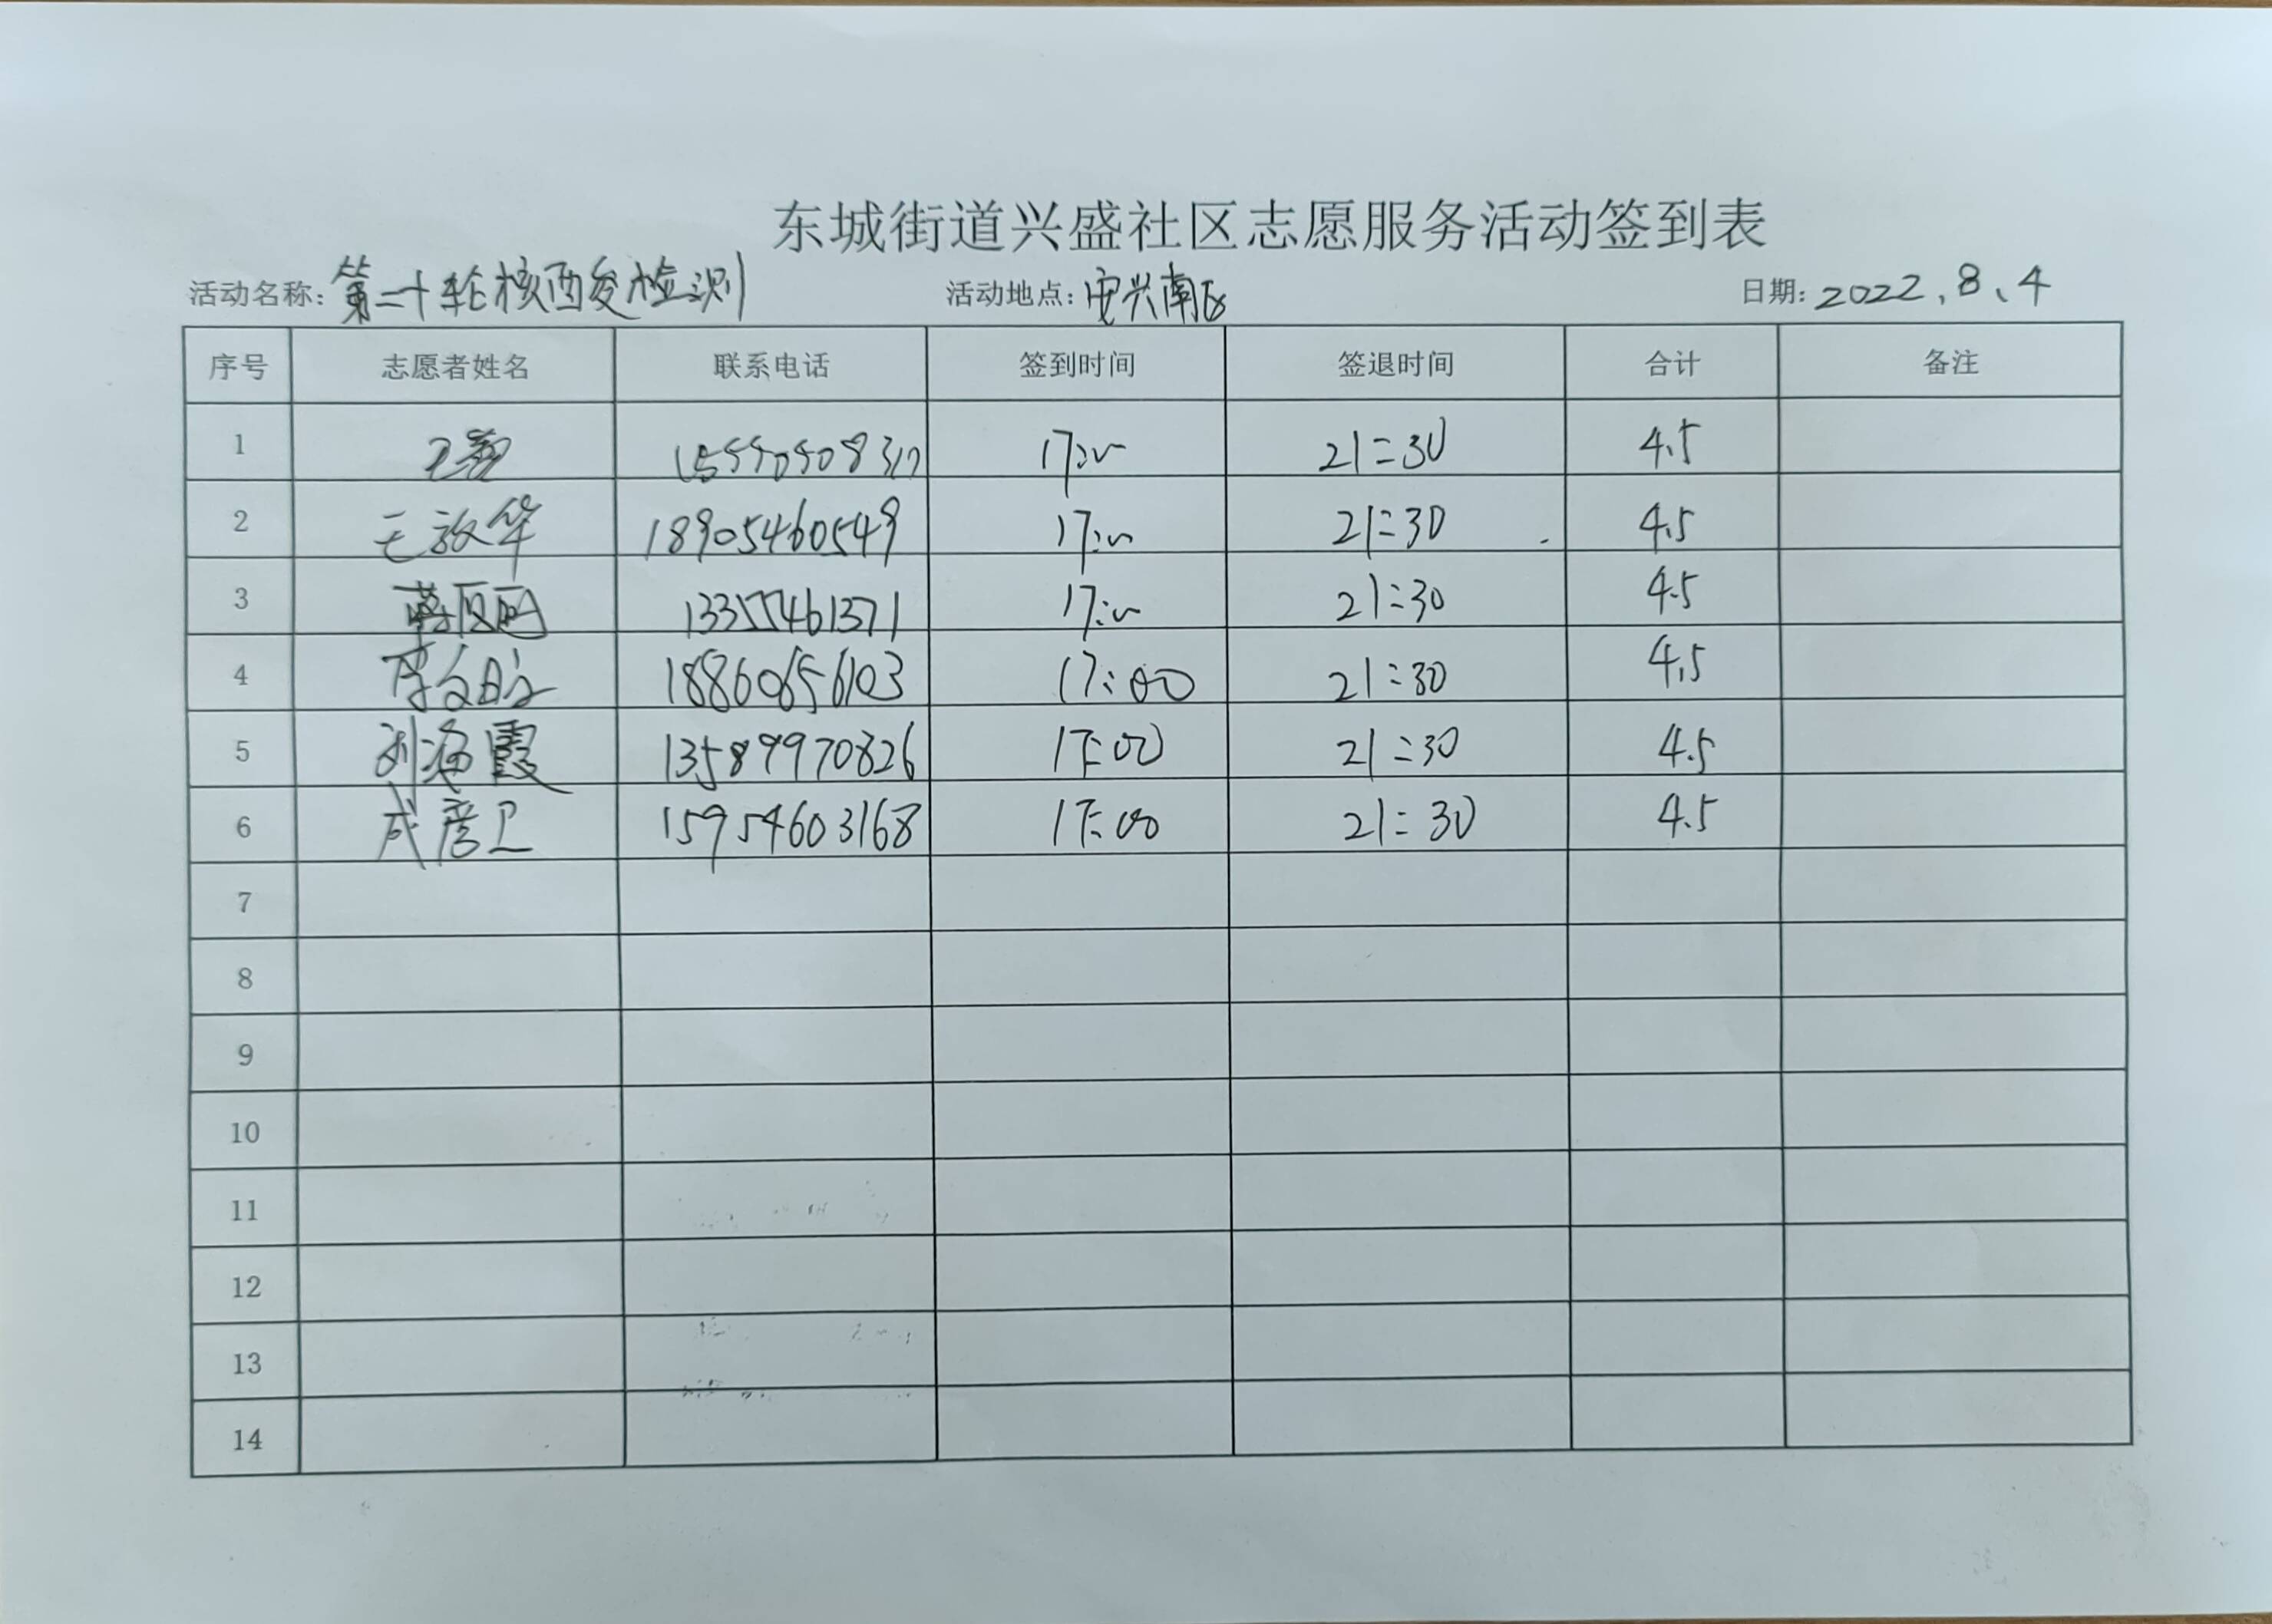 东城街道兴盛社区志愿服务活动签到表
活动名称: 第二十轮核酸检测 活动地点: 安兴南区 日期: 2022.8、4
序号 志愿者姓名 联系电话 签到时间 签退时间 合计 备注
1 17:00 21:30 4.5
2 王敬华 18905460549 17:00 21:30 4.5
3 17:00 21:30 4.5
4 18860656103 17:00 21:30 4.5
5 刘海霞 13589970826 17:00 21:30 4.5
6 成彦卫 15954603168 17:00 21:30 4.5
7
8
9
10
11
12
13
14